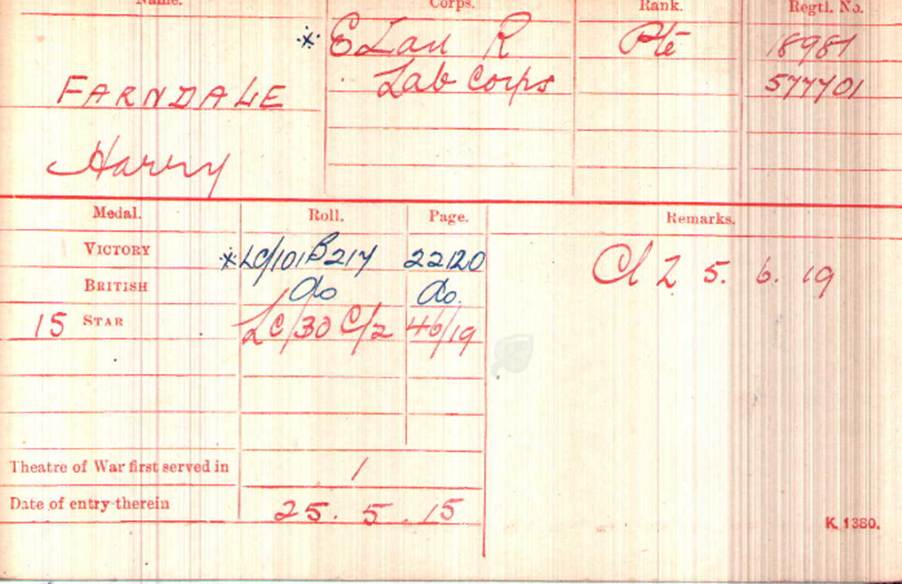 Name. Corps. Rank. Regtl. No.
* E Lan R Pte 18981
Lab Corps 577701
FARNDALE
Harry
Medal. Roll. Page. Remarks.
VICTORY * LC/101B217 22120
BRITISH do do.
15 STAR LC/30 C/2 46/19
Cl Z 5. 6. 19
Theatre of War first served in 1
Date of entry therein 25. 5. 15
K. 1380.